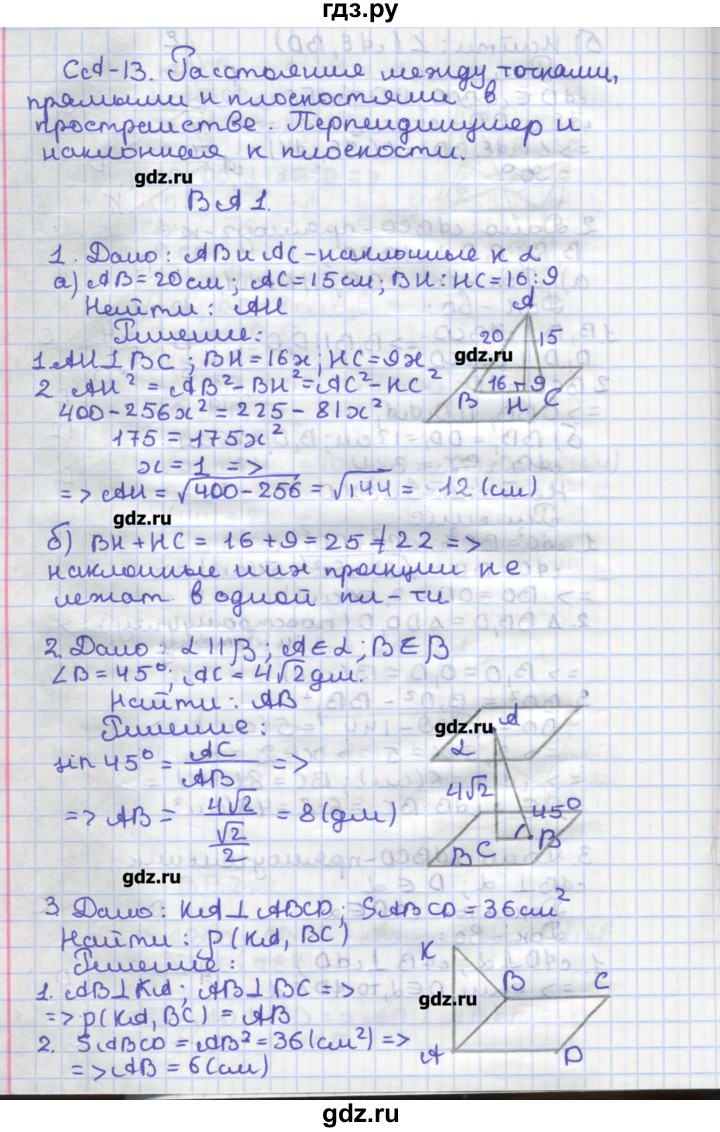 гдз.ру
СА-13. Расстояние между точками,
прямыми и плоскостями в
пространстве. Перпендикуляр и
наклонная к плоскости.
gdz.ru
ВА 1.
1. Дано: AB и AC - наклонные к α
а) AB = 20 см; AC = 15 см; BH : HC = 16 : 9
Найти: AH
Решение:
1. AH ⊥ BC; BH = 16x; HC = 9x
2 AH² = AB² - BH² = AC² - HC²
400 - 256x² = 225 - 81x²
175 = 175x²
x = 1 =>
=> AH = √400 - 256 = √144 = 12 (см)
A
20
15
gdz.ru
16
9
B
H
C
gdz.ru
б) BH + HC = 16 + 9 = 25 ≠ 22 =>
наклонные и их проекции не
лежат в одной пл-ти
2. Дано: α || β; A ∈ α; B ∈ β
∠B = 45°; AC = 4√2 дм.
Найти: AB
Решение:
sin 45° = AC/AB =>
=> AB = 4√2/(√2/2) = 8 (дм)
gdz.ru
A
α
4√2
45°
B
B C
gdz.ru
3 Дано: KA ⊥ ABCD; SABCD = 36 см²
Найти: ρ(KA, BC)
Решение:
1. AB ⊥ KA; AB ⊥ BC =>
=> ρ(KA, BC) = AB
2. SABCD = AB² = 36 (см²) =>
=> AB = 6 (см)
K
B
C
gdz.ru
A
D
gdz.ru